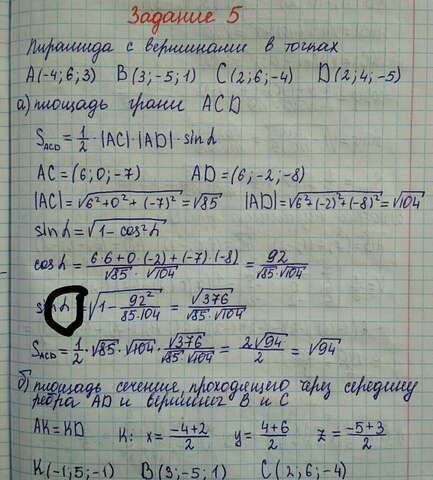 Задание 5
Пирамида с вершинами в точках
A(-4;6;3) B(3;-5;1) C(2;6;-4) D(2;4;-5)
а) площадь грани ACD
S_ACD = 1/2 · |AC| · |AD| · sin α
AC = (6; 0; -7) AD = (6; -2; -8)
|AC| = √(6²+0²+(-7)²) = √85 |AD| = √(6²+(-2)²+(-8)²) = √104
sin α = √(1 - cos²α)
cos α = (6·6+0·(-2)+(-7)·(-8))/(√85·√104) = 92/(√85·√104)
sin α = √(1 - 92²/(85·104)) = √376/(√85·√104)
S_ACD = 1/2 · √85 · √104 · √376/(√85·√104) = 2√94/2 = √94
б) площадь сечение, проходящего через середину
ребра AD и вершинег B и C
AK = KD K: x = (-4+2)/2 y = (4+6)/2 z = (-5+3)/2
K(-1;5;-1) B(3;-5;1) C(2;6;-4)